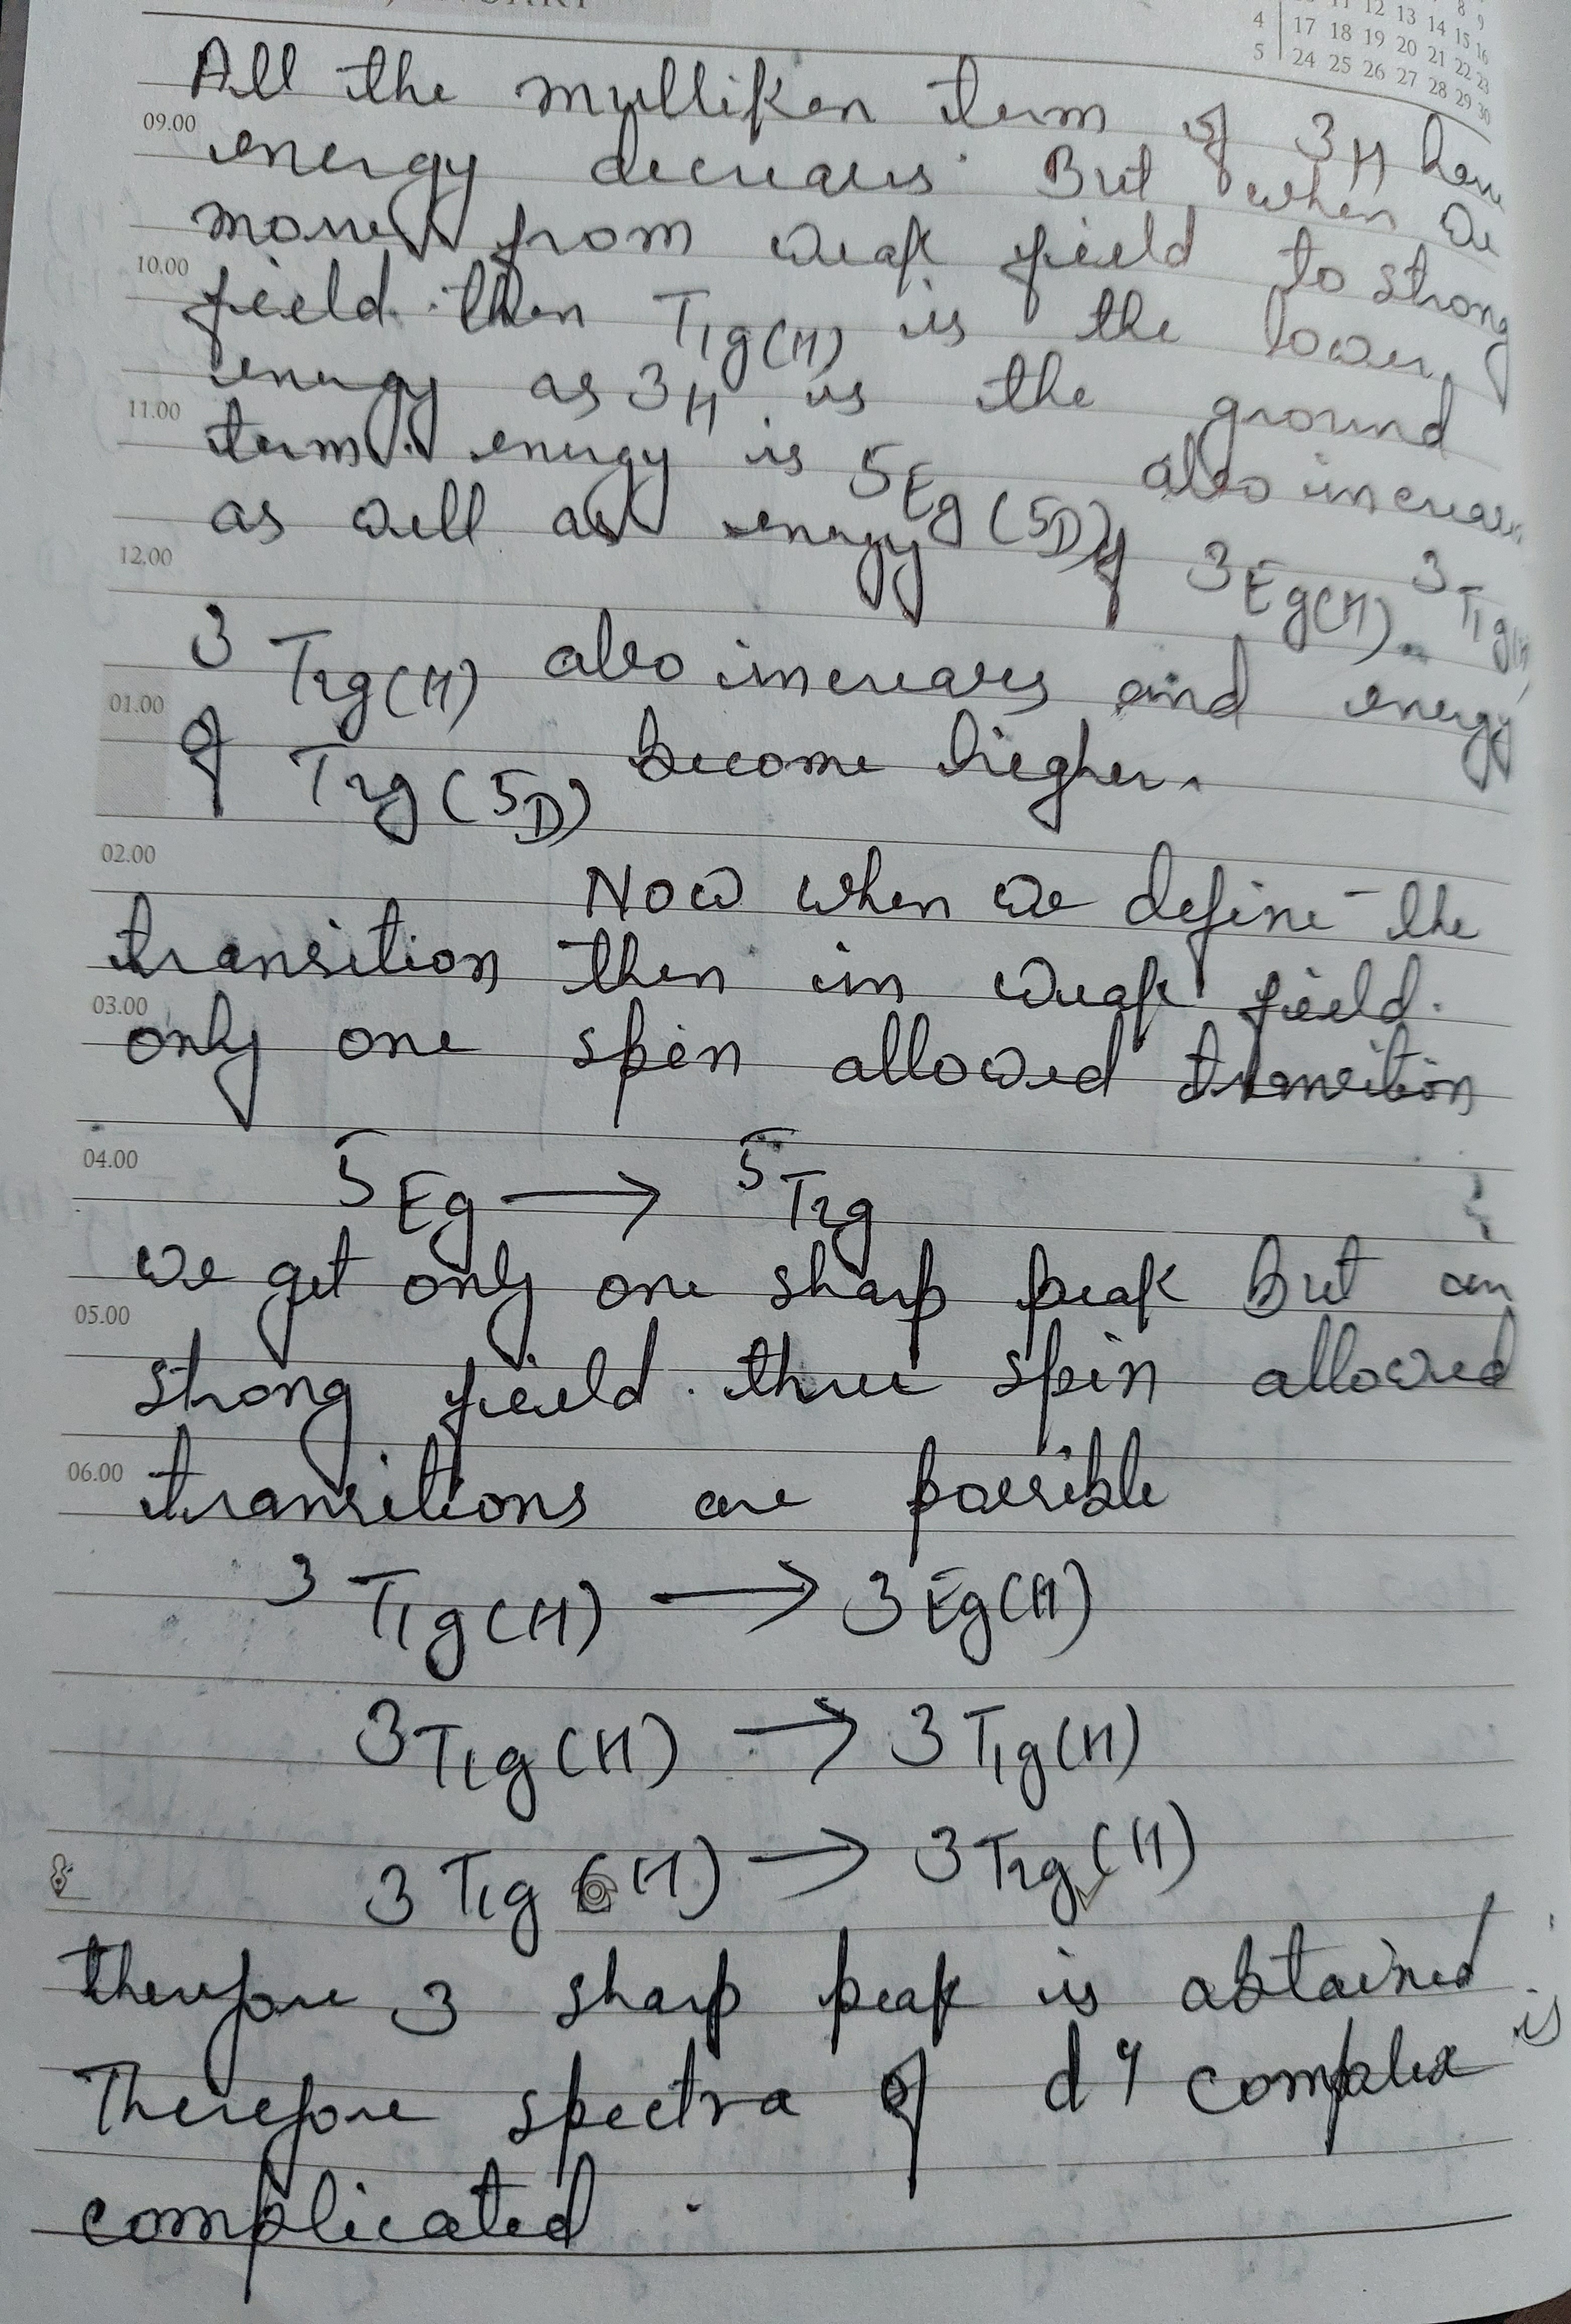 11 12 13 14 15 16
4 17 18 19 20 21 22 23
5 24 25 26 27 28 29 30
All the mulliken term of 3H have
09.00
energy decreases. But when we
moved from weak field to strong
10.00
field. then T1g(H) is the lower
energy as 3H is the ground
11.00
term. energy is 5Eg(5D) also increases
as well as energy of 3Eg(H). 3T1g(H)
12.00
3T2g(H) also increases and energy
01.00
of T2g(5D) become higher.
02.00
Now when we define the
transition then in weak field.
03.00
only one spin allowed transition
04.00
5Eg → 5T2g
we get only one sharp peak But in
05.00
strong field. three spin allowed
06.00
transitions are possible
3T1g(H) → 3Eg(H)
3T1g(H) → 3T1g(H)
3T1g(H) → 3T2g(H)
therefore 3 sharp peak is obtained
Therefore spectra of d4 complex is
complicated.